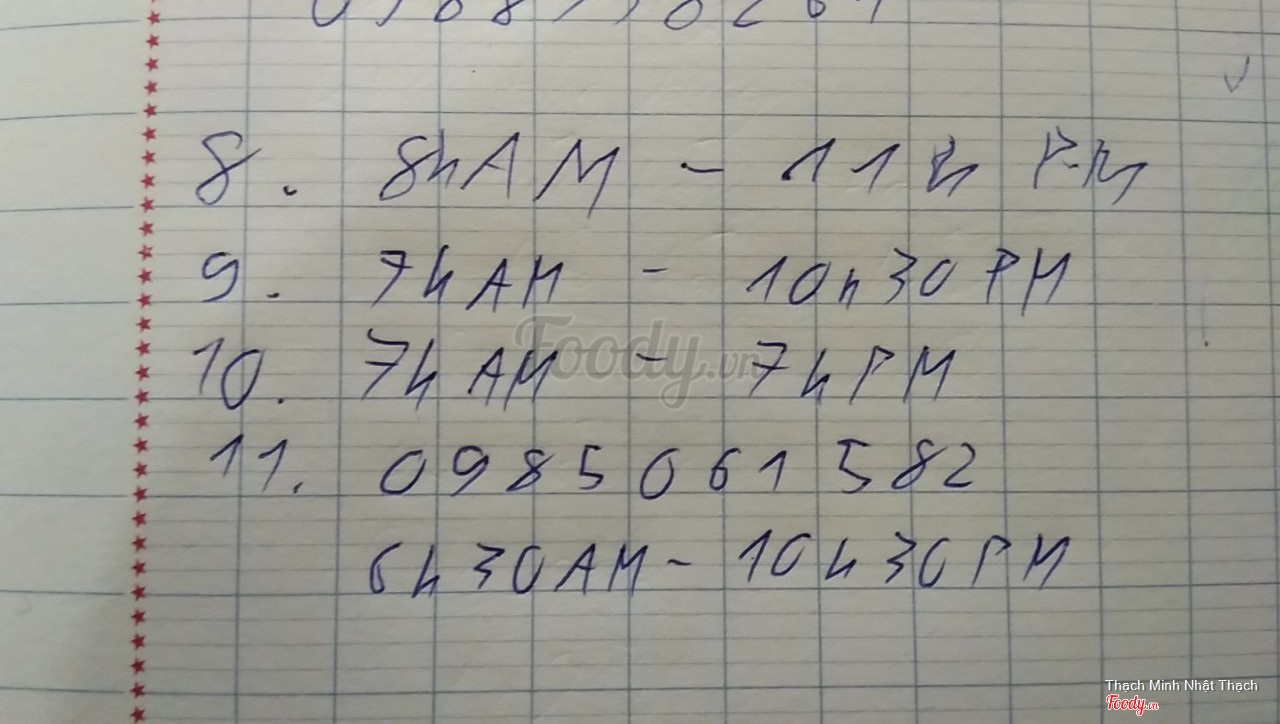 8. 8h AM - 11h PM
9. 7h AM - 10h30 PM
10. 7h AM - 7h PM
11. 0985061582
6h30 AM - 10h30 PM
Foody.vn
Thạch Minh Nhật Thạch
Foody.vn